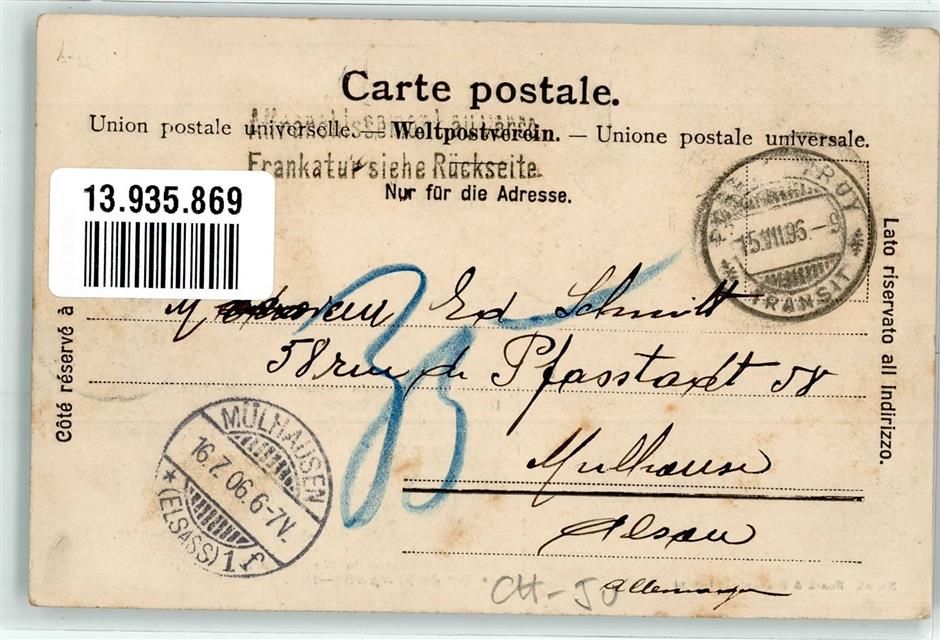 Carte postale.
Union postale universelle. — Weltpostverein. — Unione postale universale.
Frankatur siehe Rückseite.
Nur für die Adresse.
13.935.869
TRUY
15.VII.06.-9
TRANSIT
Côté réservé à
Lato riservato all indirizzo.
Monsieur Ed Schmitt
58 rue de Pfasstadt 58
Mulhouse
Alsace
Allemagne
35
MÜLHAUSEN
16.7.06.6-7V.
* (ELSASS) 1 f
CH-JU